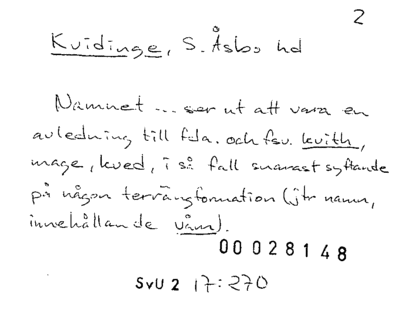 2
Kvidinge, S. Åsbo hd
Namnet ... ser ut att vara en
avledning till fda. och fsv. kvith,
mage, kved, i så fall snarast syftande
på någon terrängformation (jfr namn,
innehållande våm).
00028148
SvU 2 17:270